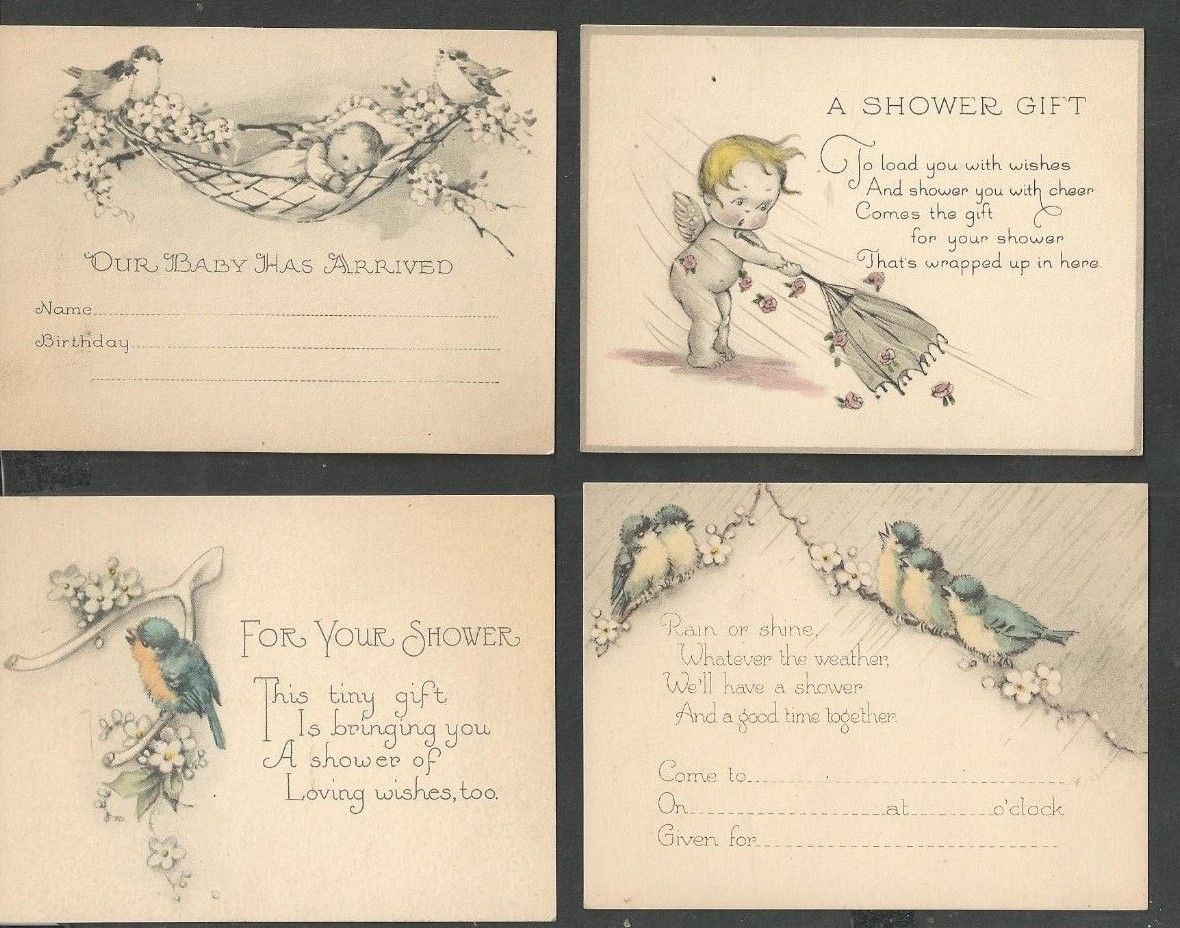 OUR BABY HAS ARRIVED
Name
Birthday
A SHOWER GIFT
To load you with wishes
And shower you with cheer
Comes the gift
for your shower
That's wrapped up in here.
FOR YOUR SHOWER
This tiny gift
Is bringing you
A shower of
Loving wishes, too.
Rain or shine,
Whatever the weather,
We'll have a shower
And a good time together.
Come to
On at o'clock
Given for